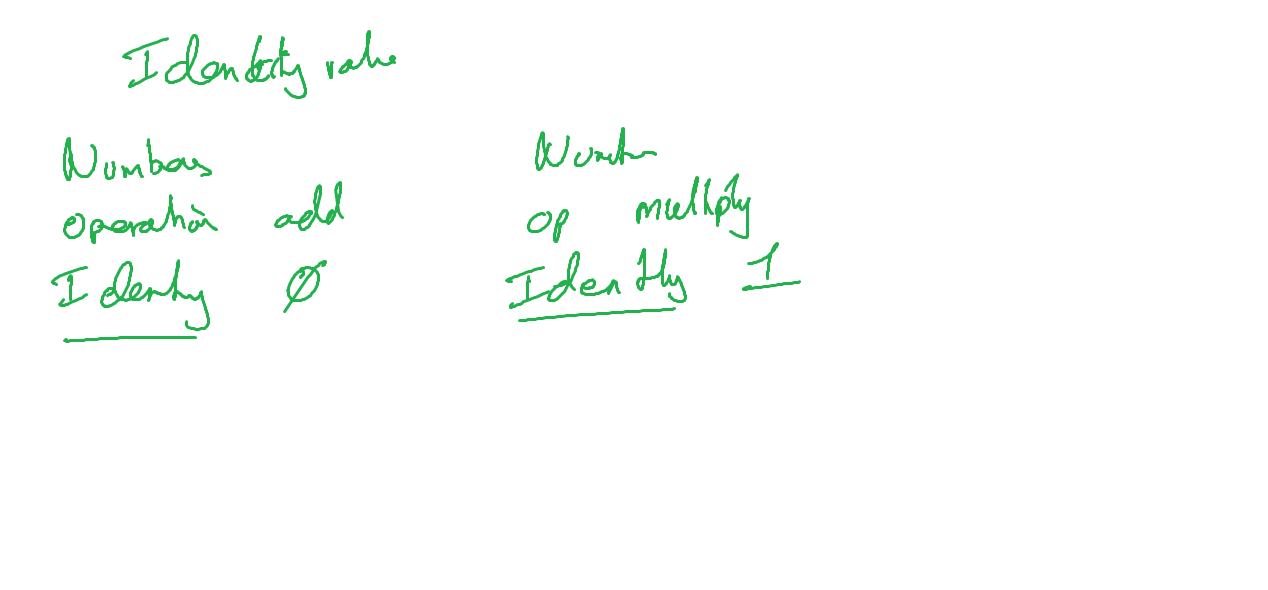 Identity value
Numbers
operation add
Identity 0
Number
op multiply
Identity 1